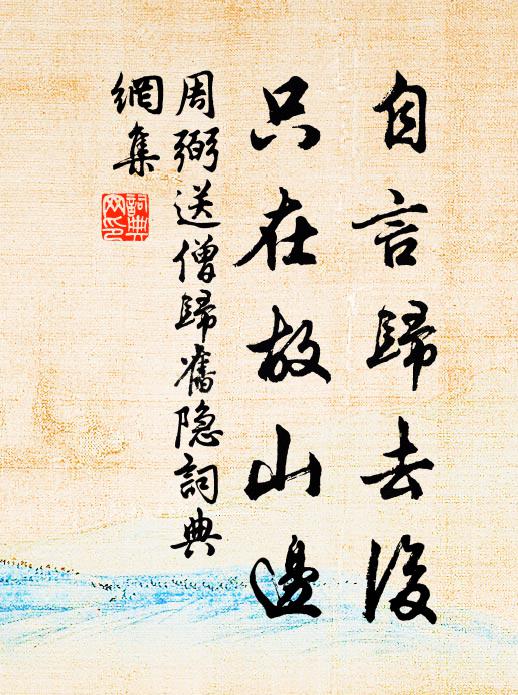 自言歸去後
只在故山邊
周弼送僧歸舊隐詞典
網集
詞典
网印